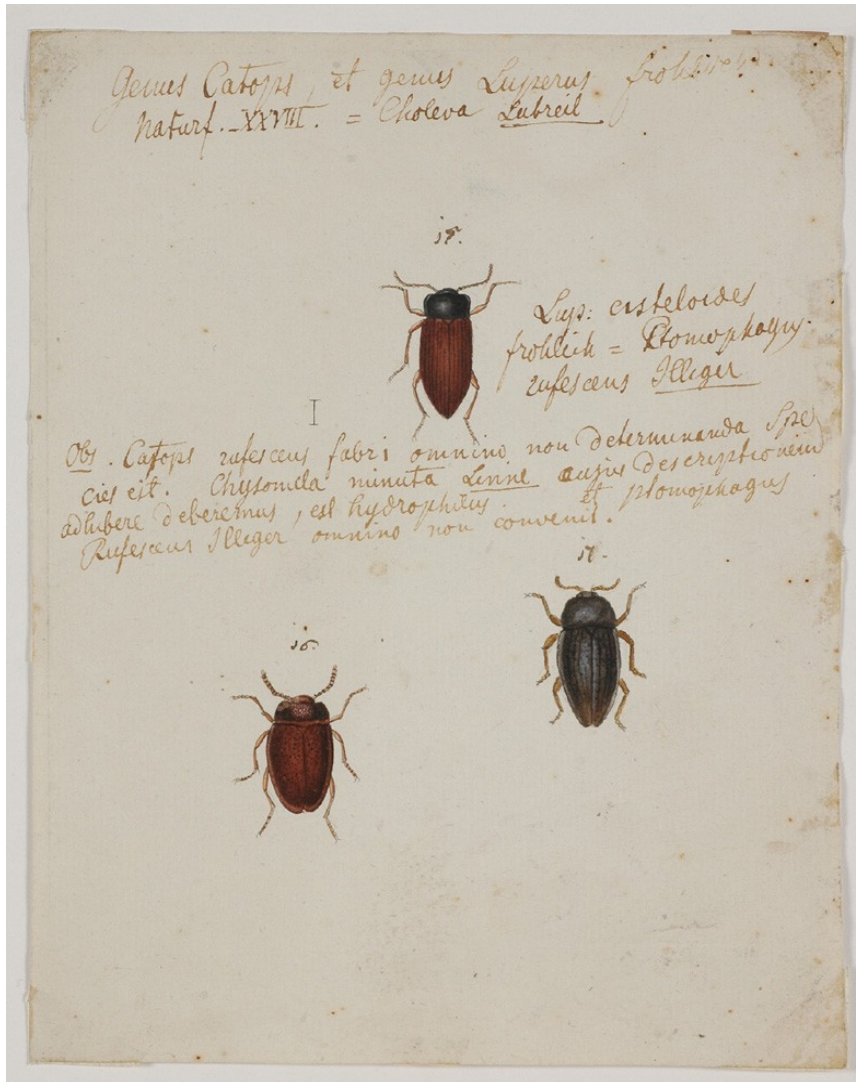 Genus Catops, et genus Luperus frohlich
Naturf. XXVIII. = Choleva Latreil
15.
Lup: cisteloides
frohlich = Ptomophagus
rufescens Illiger
I
Obs. Catops rufescens fabri omnino non determinanda Spe
cies est. Chysomela minuta Linné cujus descriptionem
adhibere deberemus, est hydrophilus. Et ptomophagus
Rufescens Illiger omnino non convenit.
17.
16.